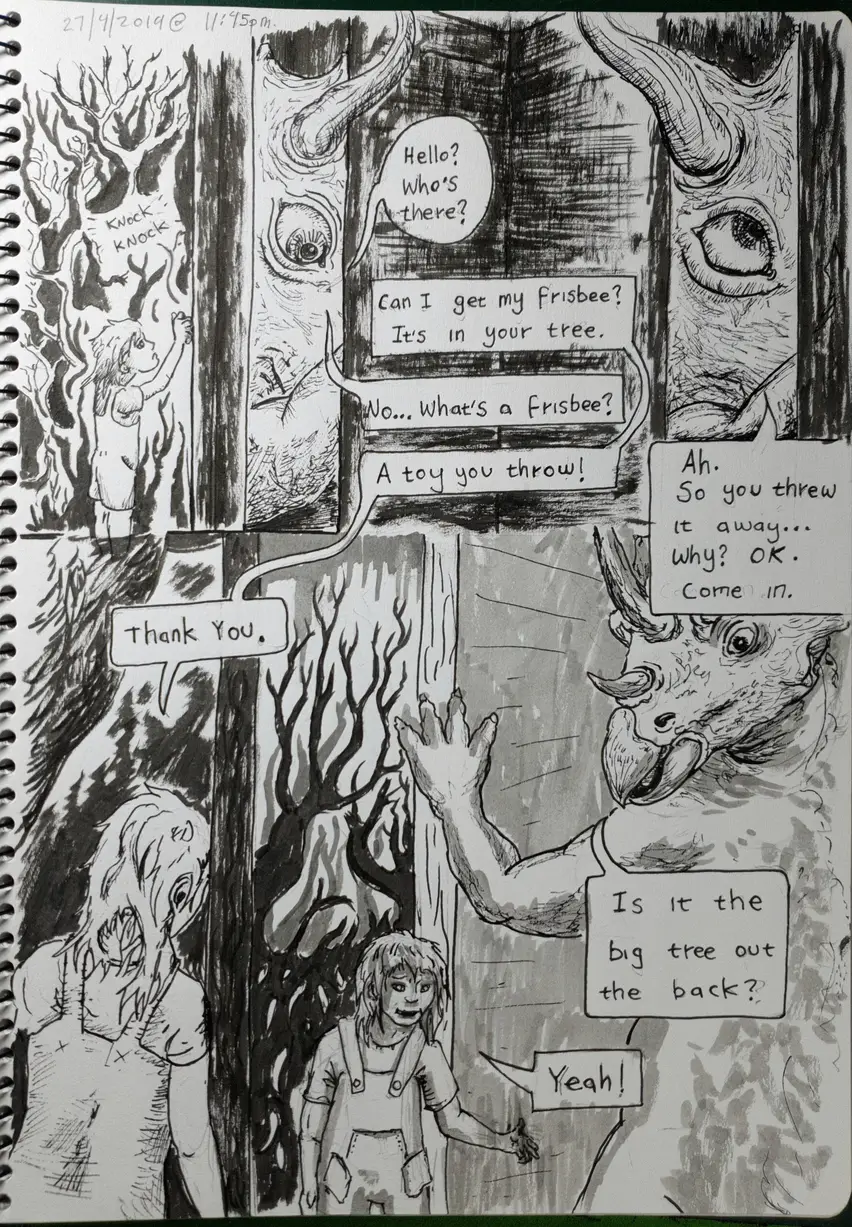 27/4/2019@ 11:45pm.
KNOCK
KNOCK
Hello?
Who's
there?
Can I get my frisbee?
It's in your tree.
No... What's a frisbee?
A toy you throw!
Ah.
So you threw
it away...
Why? OK.
Come in.
Thank You.
Is it the
big tree out
the back?
Yeah!